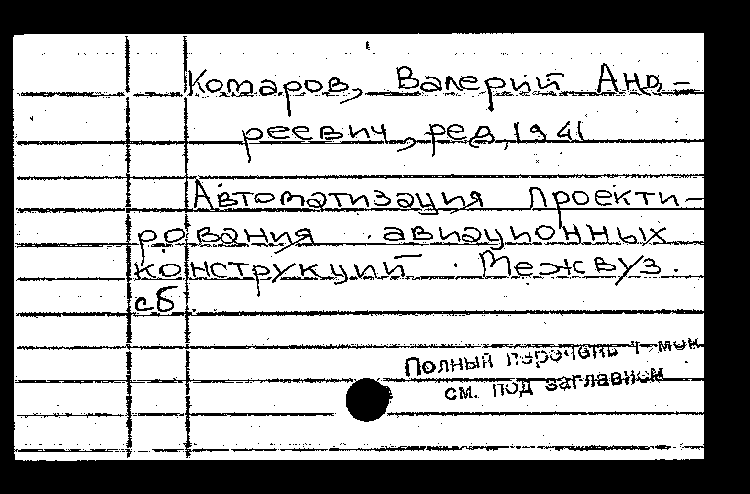 Комаров, Валерий Анд-
реевич, ред., 1941
Автоматизация проекти-
рования авиационных
конструкций. Межвуз.
сб.
Полный перечень
см. под заглавием